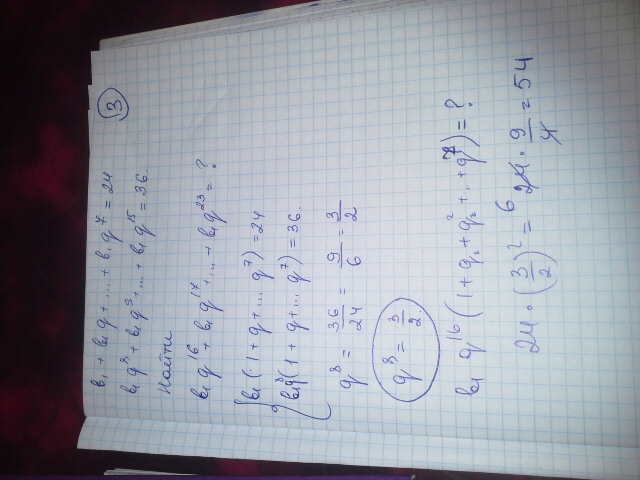 ③
b₁ + b₁q + ... + b₁q⁷ = 24
b₁q⁸ + b₁q⁹ + ... + b₁q¹⁵ = 36.
Найти
b₁q¹⁶ + b₁q¹⁷ + ... + b₁q²³ = ?
{ b₁(1 + q + ... q⁷) = 24
b₁q⁸(1 + q + ... q⁷) = 36.
q⁸ = 36/24 = 9/6 = 3/2
q⁸ = 3/2
b₁ q¹⁶ (1 + q + q² + .. + q⁷) = ?
24 · (3/2)² = ⁶24 · 9/4 = 54